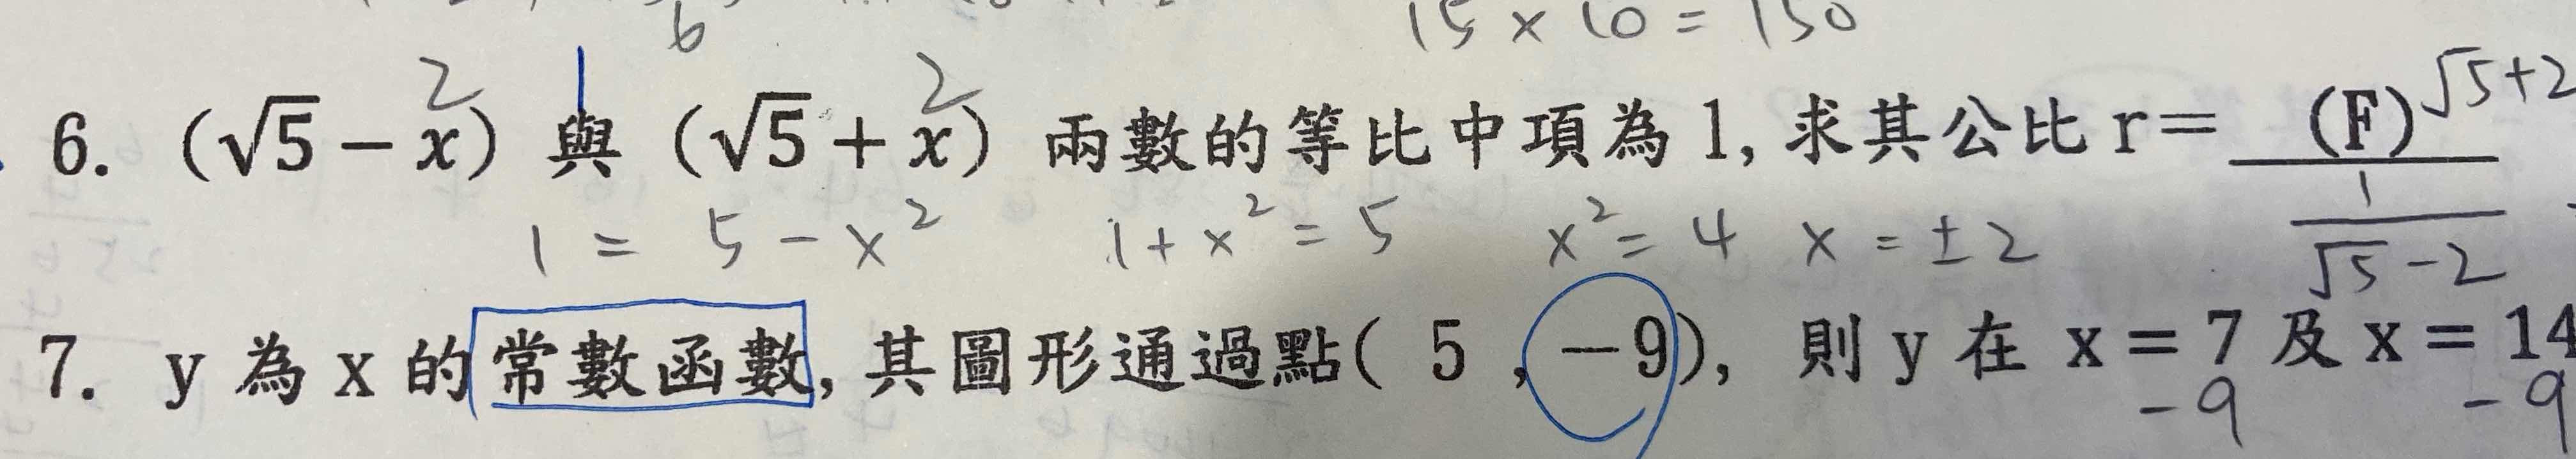 6
15 × 10 = 150
2 2 √5+2
6. (√5 − x) 與 (√5 + x) 兩數的等比中項為 1, 求其公比 r= (F)
1 = 5 − x² 1 + x² = 5 x² = 4 x = ±2 1/(√5−2)
7. y 為 x 的常數函數, 其圖形通過點( 5 , −9), 則 y 在 x = 7 及 x = 14
−9 −9